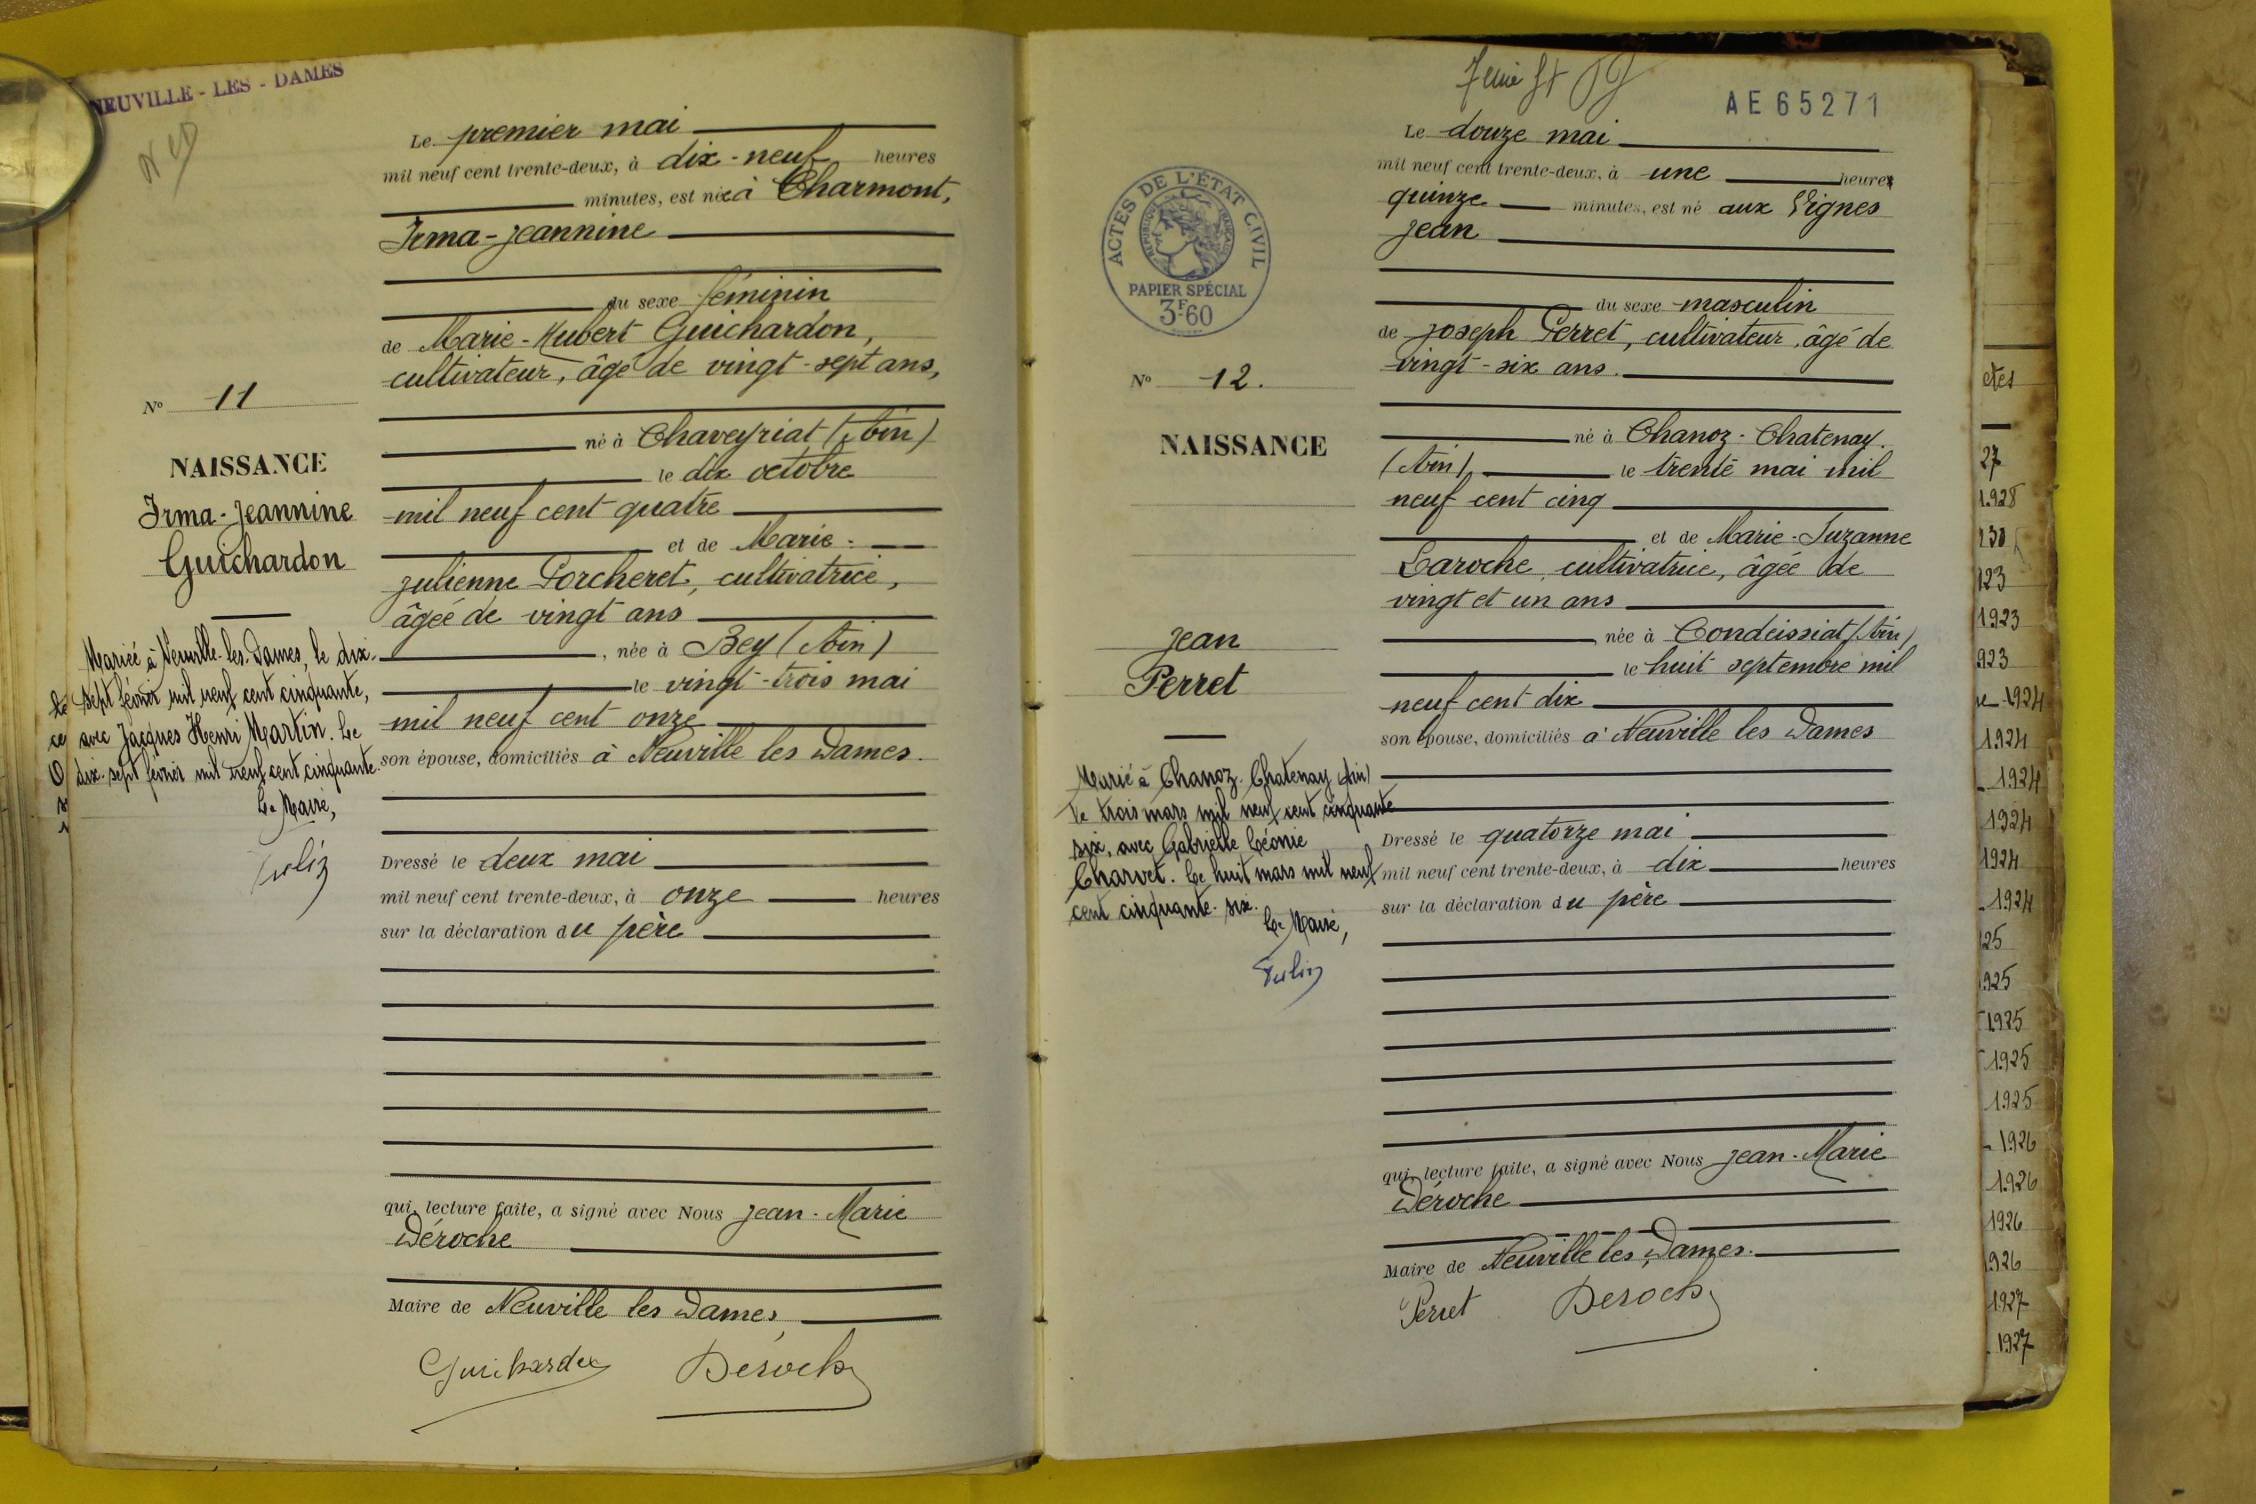 NEUVILLE - LES - DAMES
Le premier mai
mil neuf cent trente-deux, à dix-neuf heures
minutes, est née à Charmont,
Irma-Jeannine
du sexe féminin
de Marie-Hubert Guichardon,
cultivateur, âgé de vingt-sept ans,
né à Chaveyriat (Ain)
le dix octobre
mil neuf cent quatre
et de Marie-
Julienne Porcheret, cultivatrice,
âgée de vingt ans
, née à Bey (Ain)
le vingt-trois mai
mil neuf cent onze
son épouse, domiciliés à Neuville les Dames.
Dressé le deux mai
mil neuf cent trente-deux, à onze heures
sur la déclaration du père
qui, lecture faite, a signé avec Nous Jean-Marie
Déroche
Maire de Neuville les Dames
Guichardon Déroche
No 11
NAISSANCE
Irma-Jeannine
Guichardon
Mariée à Neuville-les-Dames, le dix-
sept février mil neuf cent cinquante,
avec Jacques Henri Martin. Le
dix-sept février mil neuf cent cinquante.
Le Maire,
AE65271
ACTES DE L'ÉTAT CIVIL
RÉPUBLIQUE FRANÇAISE
PAPIER SPÉCIAL
3F60
Le douze mai
mil neuf cent trente-deux, à une heure
quinze minutes, est né aux Vignes
Jean
du sexe masculin
de Joseph Perret, cultivateur, âgé de
vingt-six ans.
né à Chanoz-Chatenay.
(Ain), le trente mai mil
neuf cent cinq
et de Marie-Suzanne
Laroche, cultivatrice, âgée de
vingt et un ans
, née à Condeissiat (Ain)
le huit septembre mil
neuf cent dix
son épouse, domiciliés à Neuville les Dames
Dressé le quatorze mai
mil neuf cent trente-deux, à dix heures
sur la déclaration du père
qui, lecture faite, a signé avec Nous Jean-Marie
Déroche
Maire de Neuville les Dames.
Perret Déroche
No 12.
NAISSANCE
Jean
Perret
Marié à Chanoz-Chatenay (Ain)
le trois mars mil neuf cent cinquante
six, avec Gabrielle Léonie
Charvet. Le huit mars mil neuf
cent cinquante-six.
Le Maire,
27
1928
123
1923
923
1924
1924
1924
1924
1924
1924
25
925
1925
1925
1925
1926
1926
1926
926
1927
1927